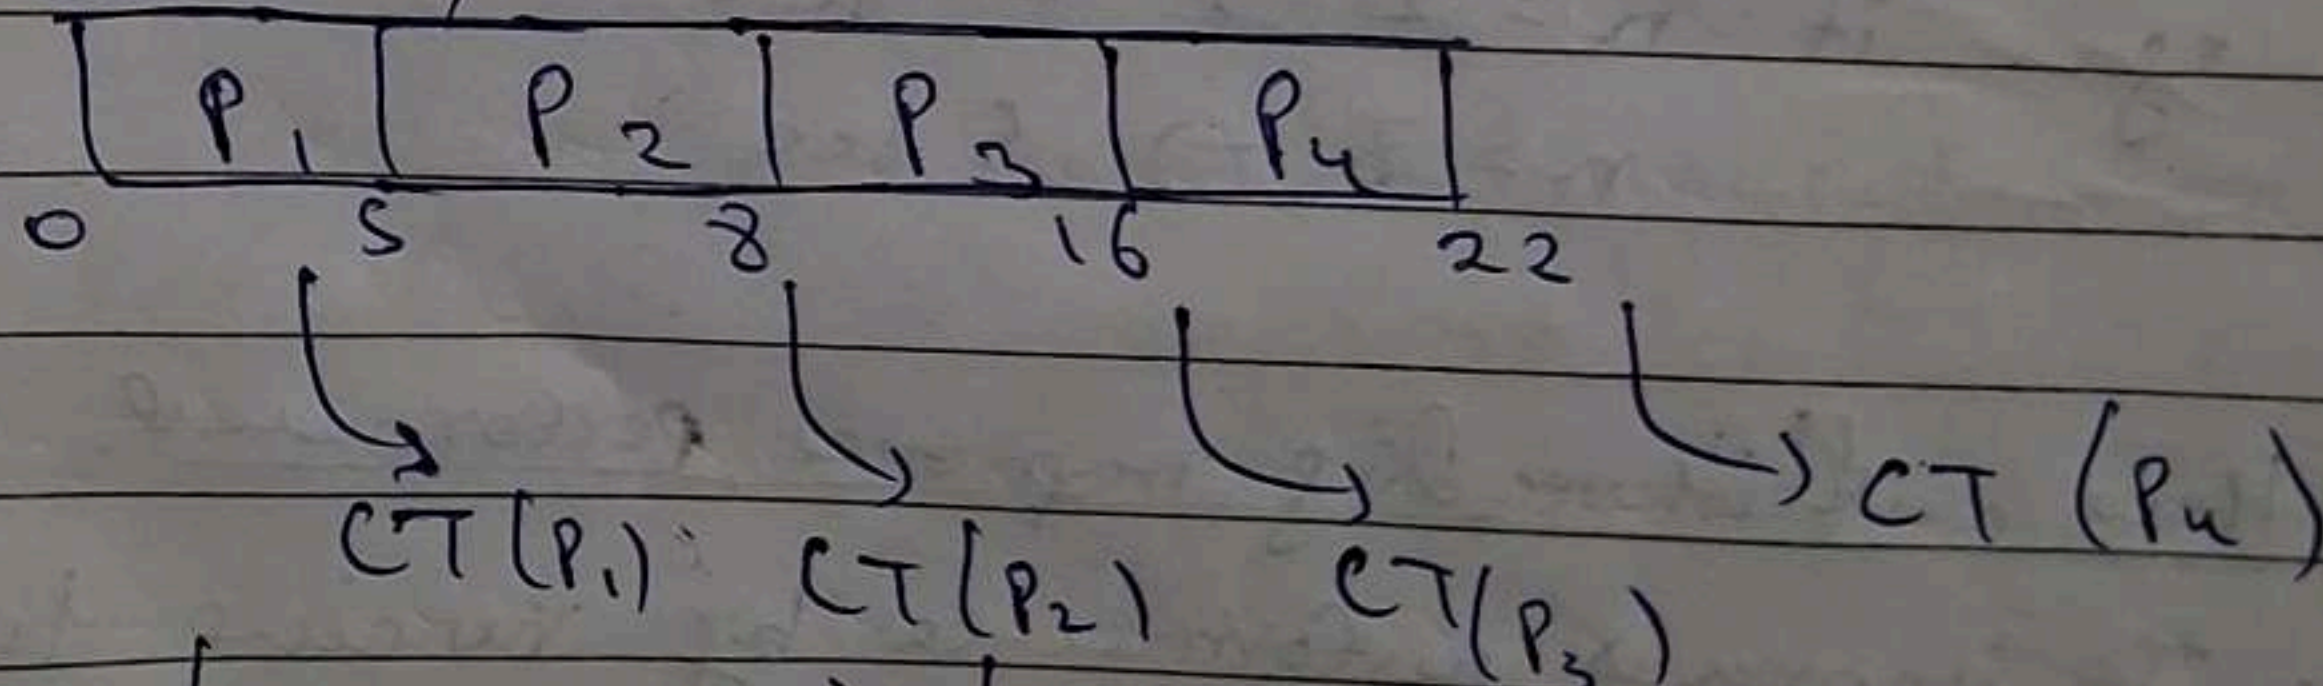 P1 P2 P3 P4
0 5 8 16 22
CT (P4)
CT (P1) CT (P2) CT (P3)